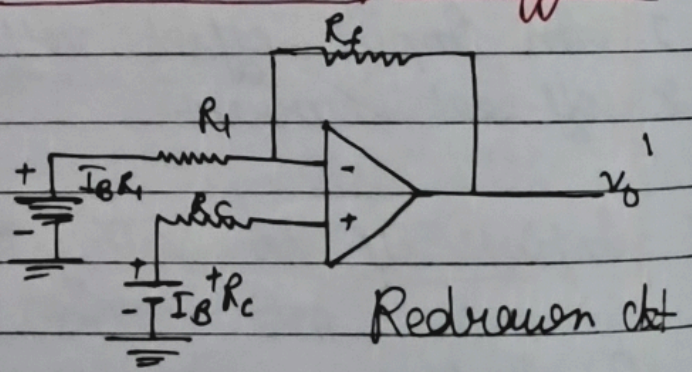 Rf
R1
+
I_B^- R1
-
Rc
-
+
Vo'
+
-
I_B^+ Rc
Redrawn ckt